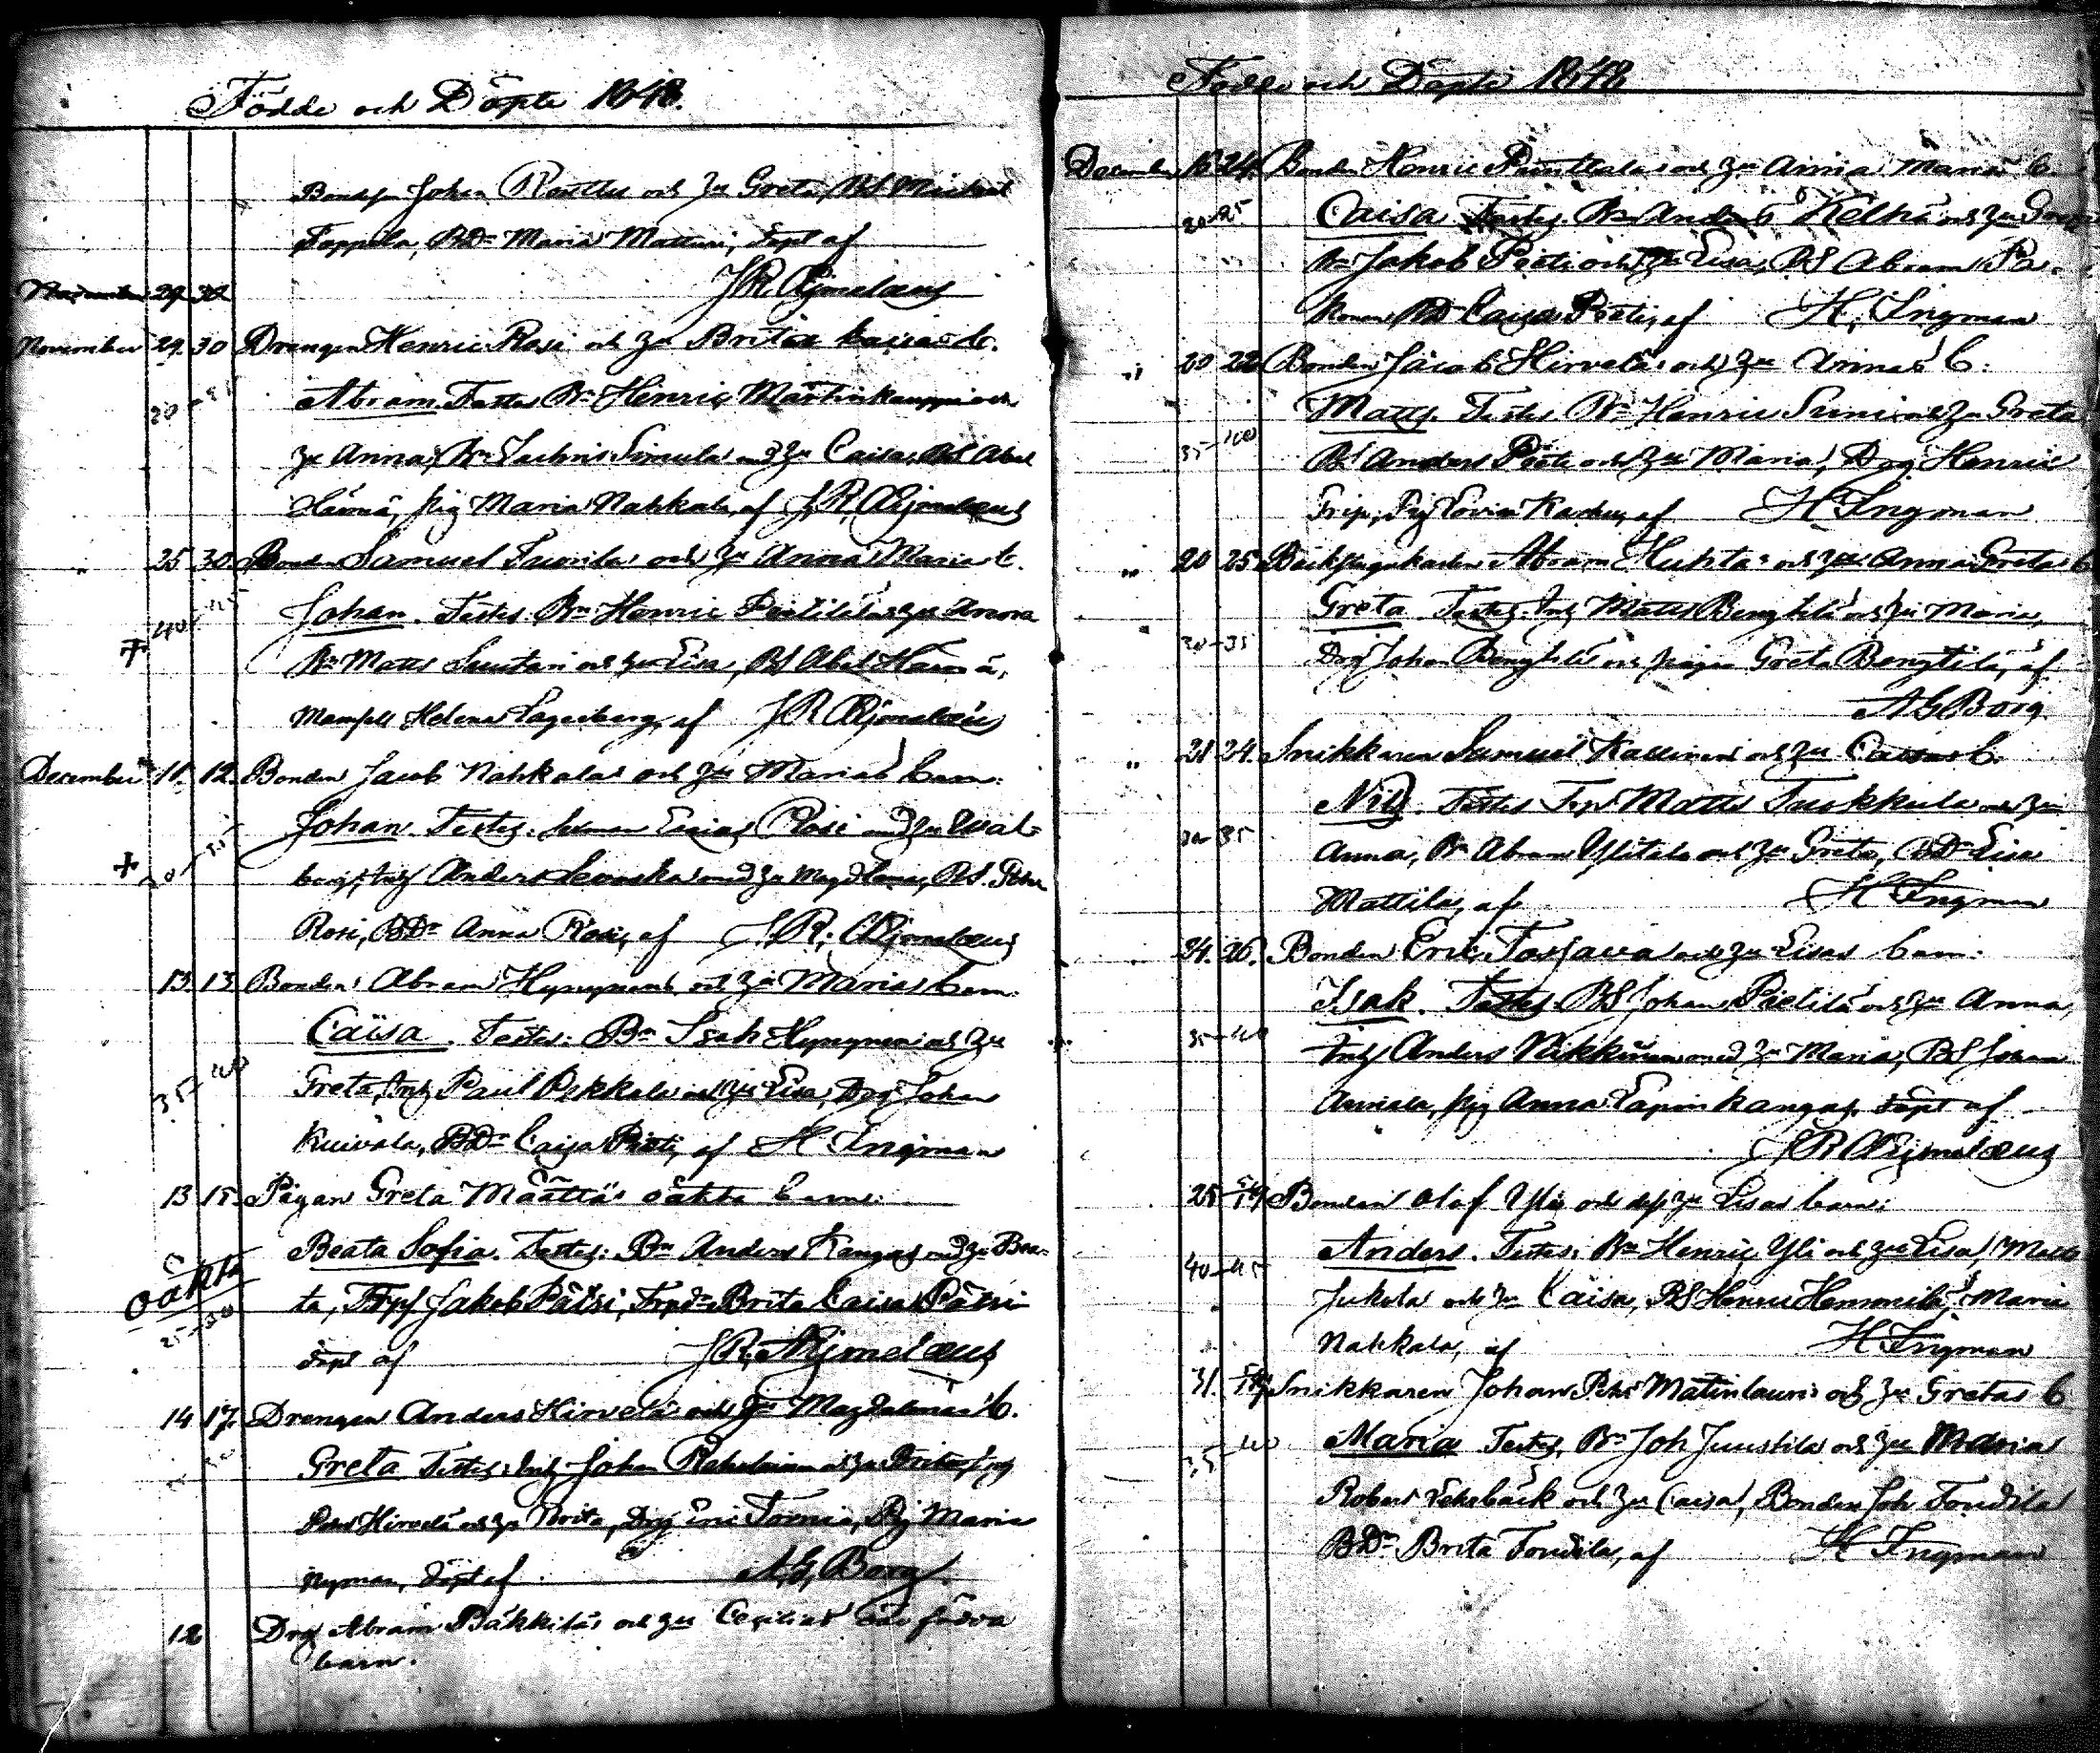 Födde och Döpte 1848.
Bondes. Johan Rautu och hu Greta, BS Michael
Toppila, BDr Maria Matturi, döpt af
J R Ajmelæus
November 29 30
November 29 30 Drengen Henric Rosi och hu Brita Kaisas b.
Abram. Testes Bn Henric Martinkauppi och
hu Anna, Bn Zachris Simula och hu Caisa, BS Abel
Harmä, pig Maria Nahkala, af J R Ajmelæus
" 25 30 Bonden Samuel Tuorila och hu Anna Marias b.
40-45 Johan. Testes. Bn Henric Pietilä och hu
+ Bn Matts och hu Lisa, BS Abel Harmä,
Mamsell Helena Lagerberg, af J R Ajmelæus
December 11. 12. Bonden Jacob Nahkalas och hu Marias barn:
Johan. Testes. Esaias Rosi och hu Wal-
+ borg, Inh Anders och hu Magdlena, BS. Petter
Rosi, BDr Anna Rosi, af J R Ajmelæus
13 13 Bonden Abram Hyrynens och hu Marias barn:
Caisa. Testes: Bn Isak Hyrynen och hu
35-40 Greta, Inh Paul Pekkala och hu Lisa, Drg Johan
Kuivala, BDr Caisa Pieti, af H Ingman
13 15. Pigan Greta Määttäs oäkta barn:
Beata Sofia. Testes: Bn Anders Kangas och hu Bea-
oäkta ta, Trps Jakob Pätsi, Trpdr Brita Caisa Pätsi
25-30 döpt af J R Ajmelæus
14 17. Drengen Anders Hirvelä och hu Magdalenas b.
Greta Testes: Inh Johan och hu Brita, Inh
Petter Hirvelä och hu Brita, Drg Eric Tornia, Pig Maria
Nyman, döpt af A. G. Borg.
12 Drg Abram Bäkkiläs och hu Cecilias
barn.
Födde och Döpte 1848
December 16 24. Bonden Henric Punttalas och hu Anna Marias b
20-25 Caisa Testes. Bn Anders Kelhä och hu
Bn Jakob Pieti och hu Lisa, BS Abram Pa-
konen BD Caisa Pieti, af H. Ingman
" 20 22 Bonden Jacob Hirveläs och hu Annas b:
Matts. Testes Bn Henric Suni och hu Greta
35-40 BS Anders Pieti och hu Maria, Drg Henric
Grip, Pig Lovisa, af H Ingman
" 20 25 Backstugukarlen Abram Huhtas och hu Anna Gretas b
Greta Testes. Inh Matts Bengtilä och hu Maria,
30-35 Drg Johan Bengtilä och pigan Greta Bengtilä, af
A G Borg.
" 21 24. Snikkaren Samuel Kallinens och hu Caisas b.
Nils. Testes Trp Matts Tuokkula och hu
30-35 Anna, Bn Abram Ylitalo och hu Greta, BDr Lisa
Mattila, af H Ingman
24. 26. Bonden Eric Tasjava och hu Lisas barn:
Isak. Testes. BS Johan Pietilä och hu Anna,
35-40 Inh Anders Nikkinen med hu Maria, BS Johan
Anniala, pig Anna Lapinkangas. döpt af
J R Ajmelæus
25 Bonden Olof Ylis och dess hu Lisas barn:
Anders. Testes: Bn Henric Yli och hu Lisa, Matts
40-45 Jukola och hu Caisa, BS Henric Hemmilä, Maria
Nahkala, af H Ingman
31. Snikkaren Johan Petter Matinlauris och hu Gretas b
35-40 Maria Testes, Bn Joh Juustila och hu Maria
Robert Lehrbäck och hu Caisa, Bonden Joh Toudila
BDr Brita Toudila, af H Ingman